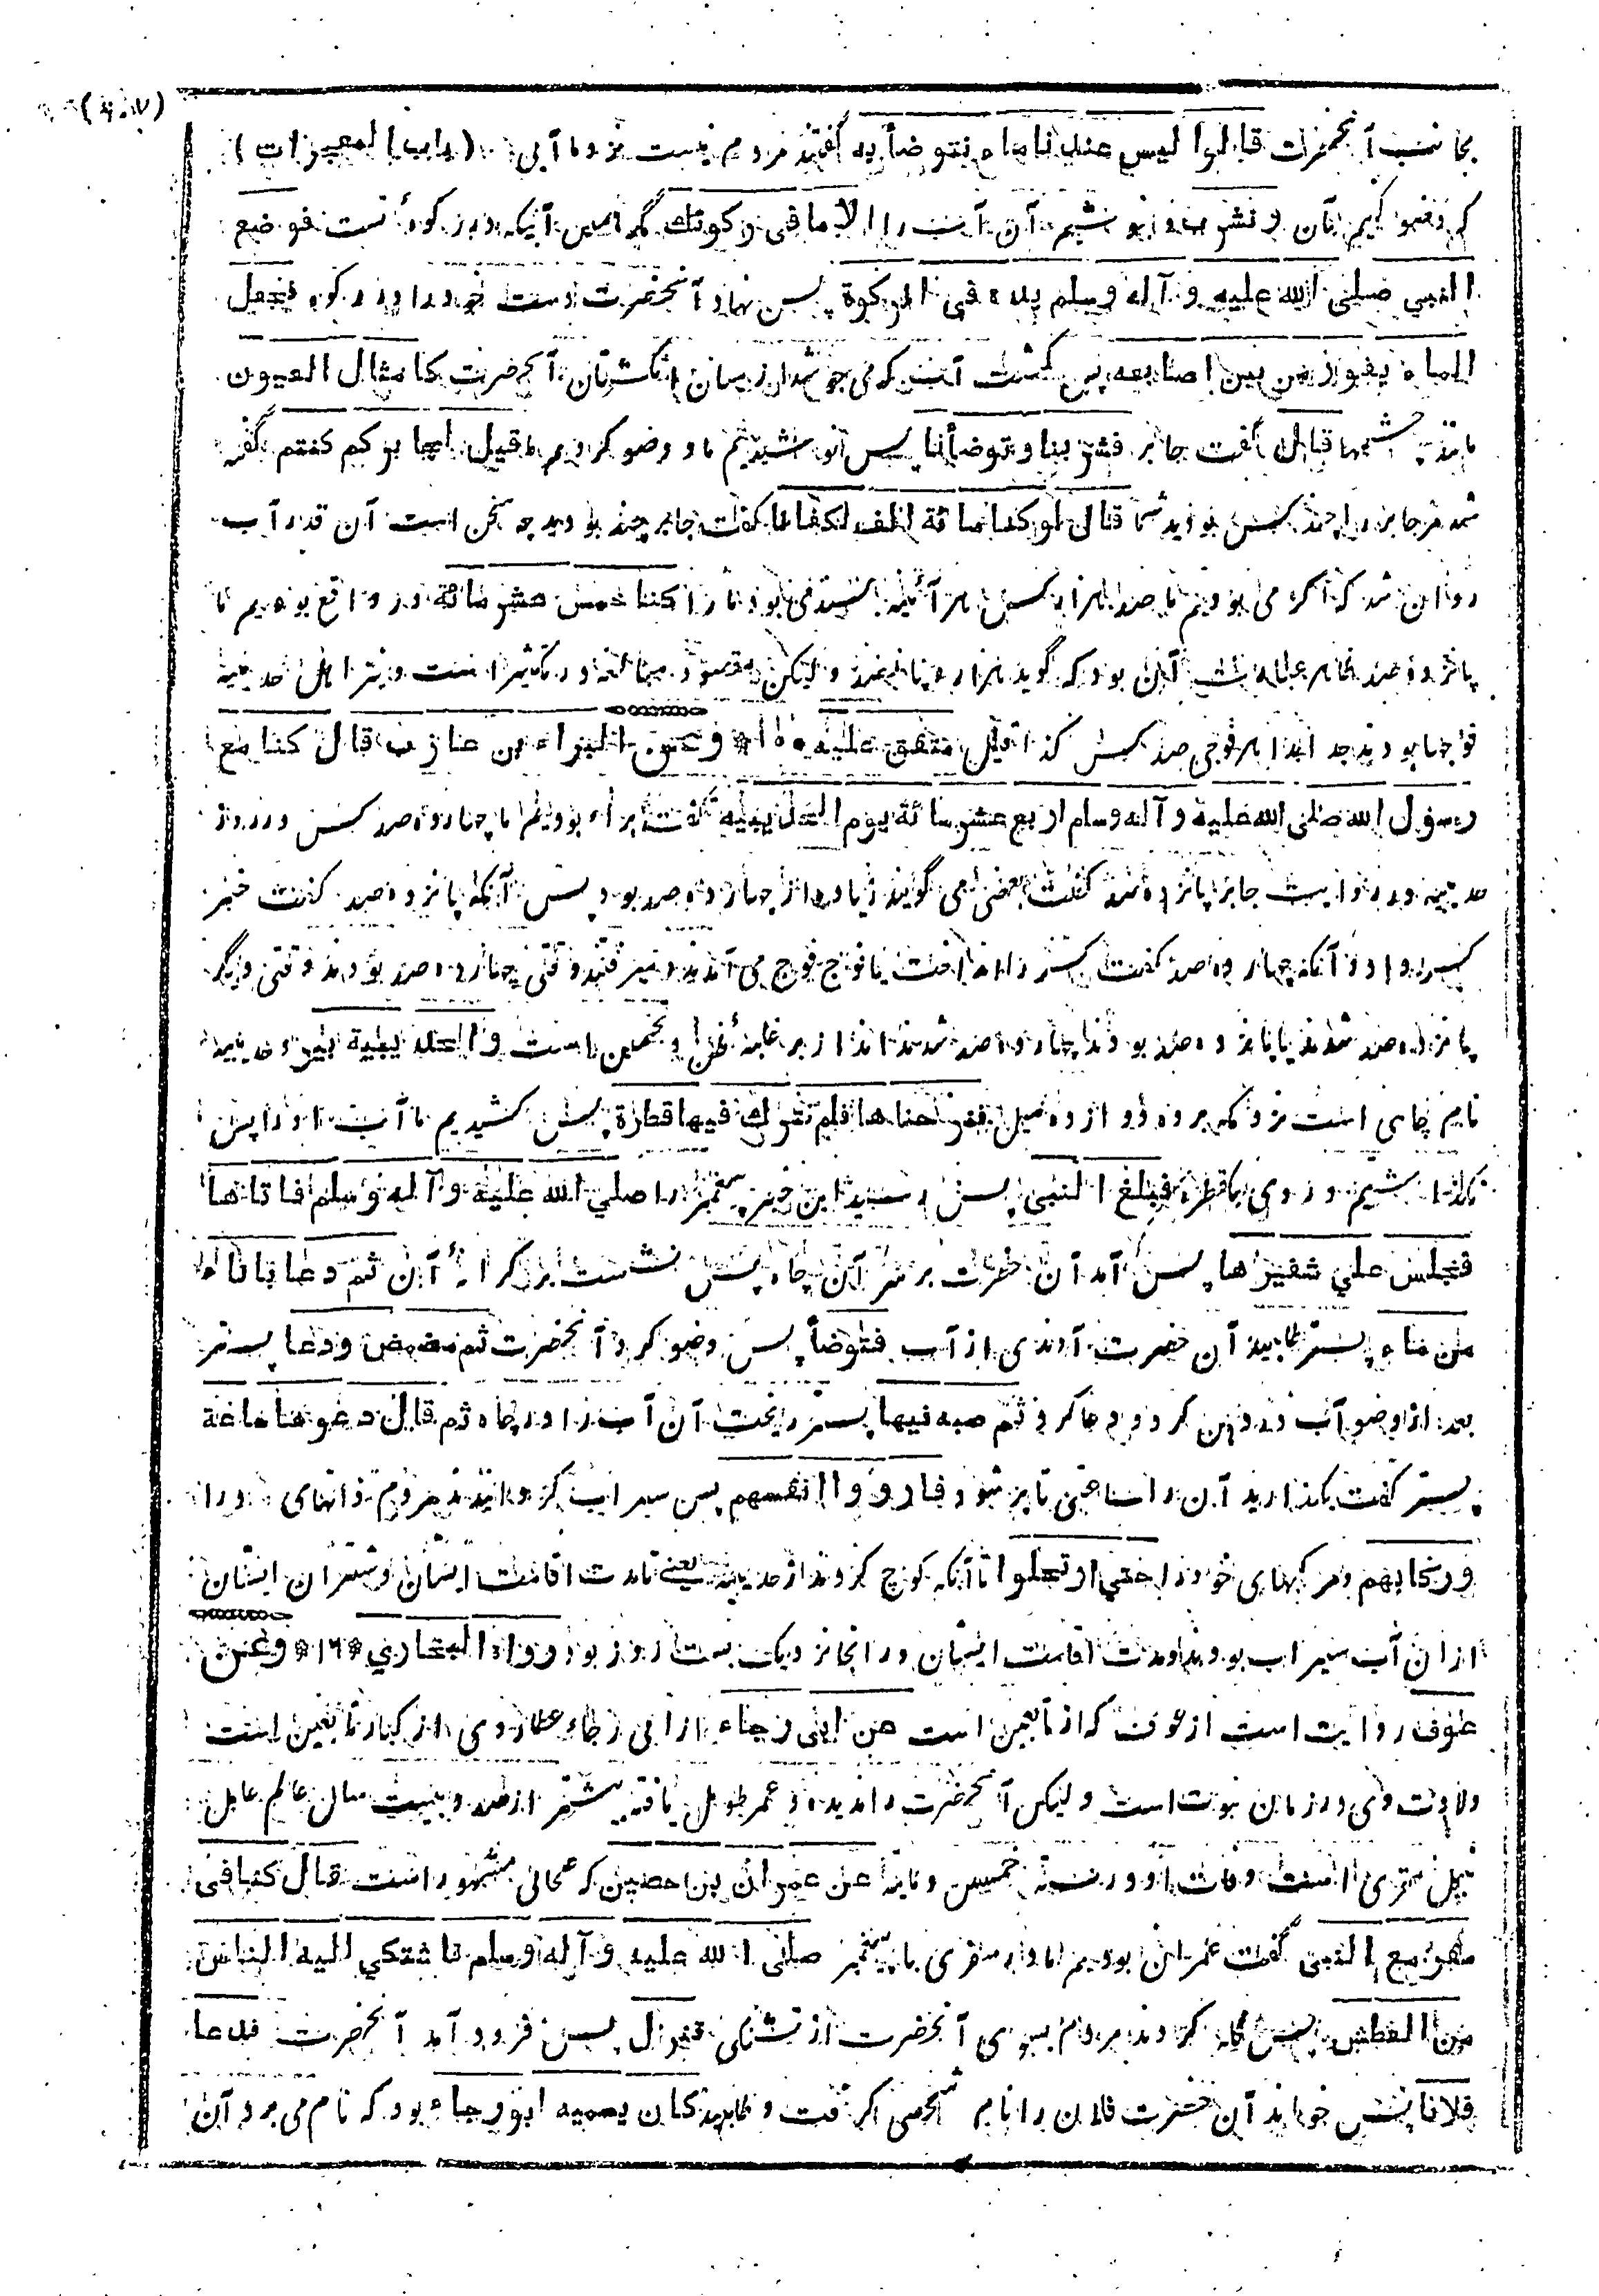 بجانب آنحضرت قالوا ليس عندنا ماء نتوضأ به گفتند مردم نيست نزد ما آبی (باب المعجزات)
که وضو کنیم بآن و نشرب و نوشیم آن آب را الا ما في ركوتك مگر همین آبیکه در رکوهٔ تست فوضع
النبي صلى الله عليه و آله وسلم يده في الركوة پس نهاد آنحضرت دست خود را در رکوه فجعل
الماء يفور من بين اصابعه پس گشت آب که می جوشد از میان انگشتان آنحضرت كامثال العيون
مانند چشمها قال گفت جابر فشربنا وتوضأنا پس نوشیدیم ما و وضو کردیم ما قيل لجابر كم كنتم گفته
شد مر جابر را چند کس بودید شما قال لو كنا مائة الف لكفانا گفت جابر چند بودید چه سخن است آن قدر آب
روان شد که اگر می بودیم ما صد هزار کس هر آئینه بسند می بود ما را كنا خمس عشر مائة در واقع بودیم ما
پانزده صد ظاهر عبارت آن بود که گوید هزار و پانصد و لیکن مقصود مبالغه در تکثیر است و نیز اهل حدیبیه
فوجها بودند جدا جدا هر فوجی صد کس کذا قیل متفق عليه * ۱۵ * وعن البراء بن عازب قال كنا مع
رسول الله صلى الله عليه و آله وسلم اربع عشر مائة يوم الحديبية گفت براء بودیم ما چهارده صد کس در روز
حدیبیه و در روایت جابر پانزده صد گفت بعضی می گویند زیاده از چهارده صد بود پس آنکه پانزده صد گفت جبر
کسر داد و آنکه چهارده صد گفت کسر را انداخت یا فوج فوج می آمدند و میرفتند وقتی چهارده صد بودند وقتی دیگر
پانزده صد شدند یا پانزده صد بودند چهارده صد شدند اندازه بر غلبهٔ ظن و تخمین است والحديبية بئر و حدیبیه
نام چاهی است نزد مکه بر دوازده میل فنزحناها فلم نترك فيها قطرة پس کشیدیم ما آب او را پس
نگذاشتیم در وی یک قطره فبلغ النبي پس رسید این خبر پیغمبر را صلي الله عليه و آله وسلم فاتاها
فجلس علي شفيرها پس آمد آن حضرت بر سر آن چاه پس نشست بر کرانهٔ آن ثم دعا باناء
من ماء پستر طلبید آن حضرت آوندی از آب فتوضأ پس وضو کرد آنحضرت ثم مضمض ودعا پستر
بعد از وضو آب در دهن کرد و دعا کرد ثم صبه فيها پستر ریخت آن آب را در چاه ثم قال دعوها ساعة
پستر گفت بگذارید آن را ساعتی تا پر شود فارووا انفسهم پس سیراب گردانیدند مردم ذاتهای خود را
وركابهم و مرکبهای خود را حتي ارتحلوا تا آنکه کوچ کردند از حدیبیه یعنے تا مدت اقامت ایشان و شتران ایشان
ازان آب سیراب بودند و مدت اقامت ایشان در انجا نزدیک بست روز بود رواه البخاري * ۱۶ * وعن
عوف روایت است از عوف که از تابعین است عن ابي رجاء از ابی رجاء عطاردی از کبار تابعین است
ولادت وی در زمان نبوت است و لیکن آنحضرت را ندیده و عمر طویل یافته بیشتر از صد و بیست سال عالم عامل
نبیل مقری است وفات او در سنه خمس و مایة عن عمران بن حصين که صحابی مشهور است قال كنا في
سفر مع النبي گفت عمران بودیم ما در سفری با پیغمبر صلى الله عليه و آله وسلم فاشتكي اليه الناس
من العطش پس گله کردند مردم بسوی آنحضرت از تشنگی فنزل پس فرود آمد آنحضرت فدعا
فلانا پس خواند آن حضرت فلان را نام شخصی گرفت و طلبید كان يسميه ابو رجاء بود که نام می برد آن